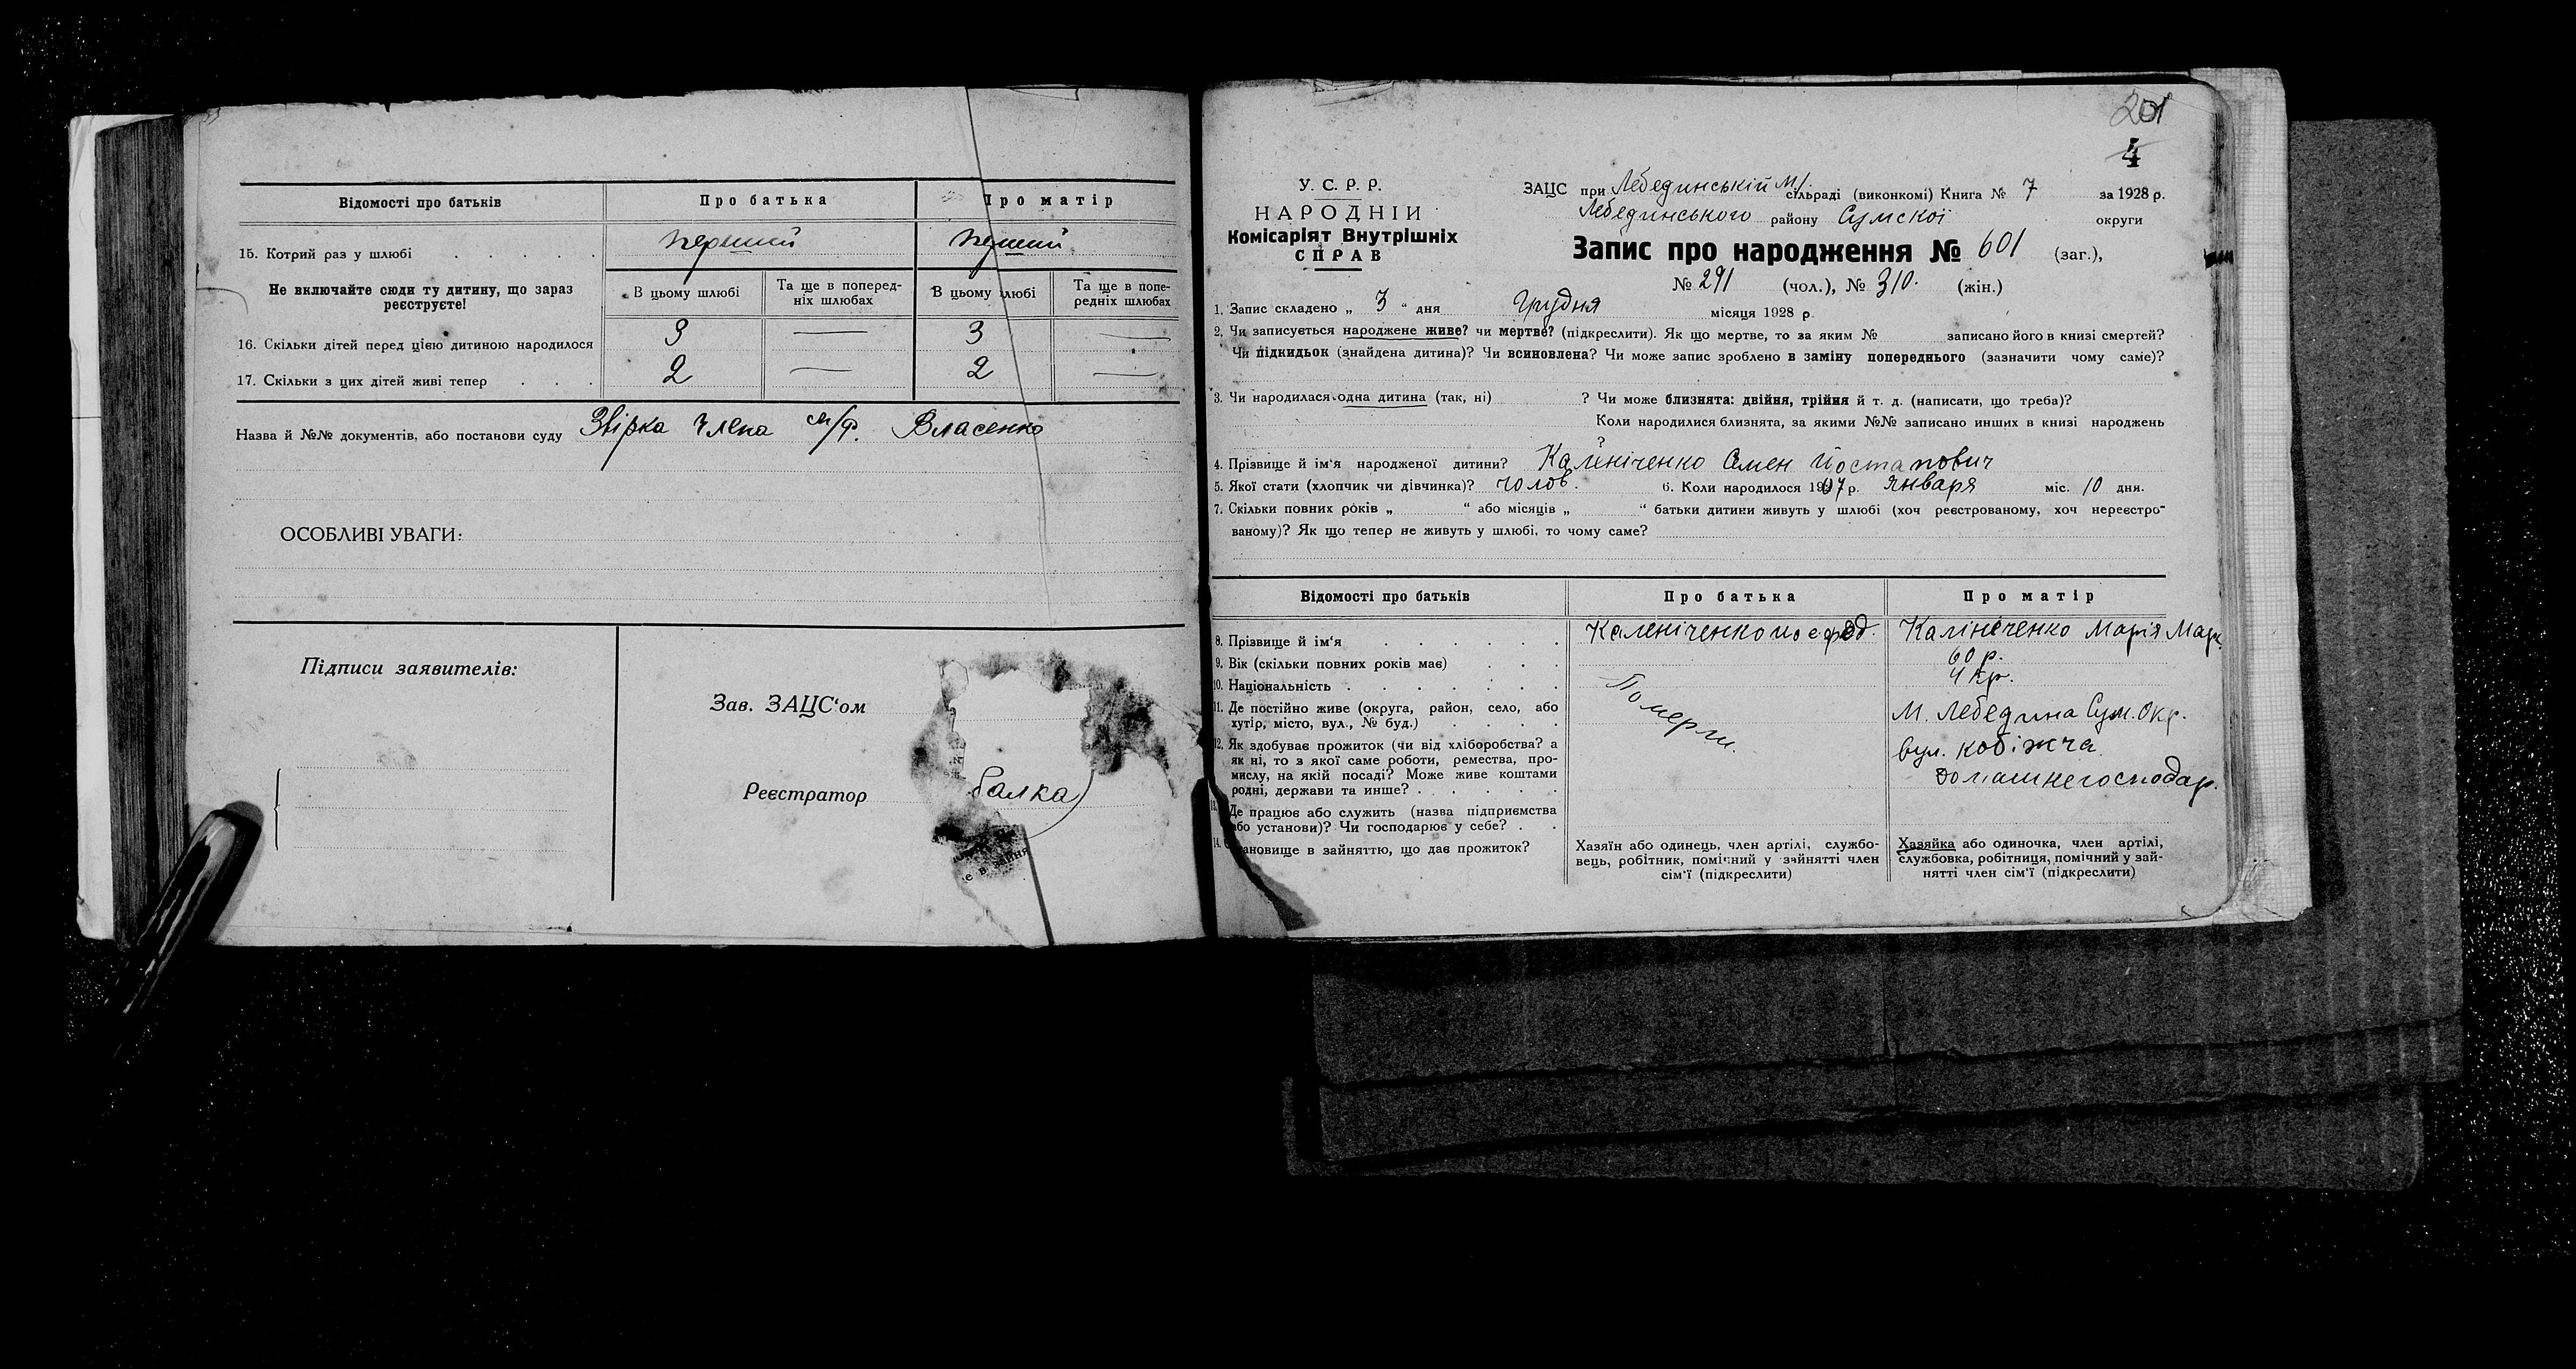 Відомості про батьків
Про батька
Про матір
15. Котрий раз у шлюбі . . . . .
перший
перший
Не включайте сюди ту дитину, що зараз
реєструєте!
В цьому шлюбі
Та ще в поперед-
ніх шлюбах
В цьому любі
Та ще в попе-
редніх шлюбах
16. Скільки дітей перед цією дитиною народилося
3 — 3 —
17. Скільки з цих дітей живі тепер . . .
2 — 2 —
Назва й №№ документів, або постанови суду Звірка члена м/р. Власенко
ОСОБЛИВІ УВАГИ:
Підписи заявителів:
Зав. ЗАЦС'ом
Реєстратор балка
201
4
У. С. Р. Р.
НАРОДНІЙ
Комісаріят Внутрішніх
СПРАВ
ЗАЦС при Лебединській м/. сільраді (виконкомі) Книга № 7 за 1928 р.
Лебединського району Сумскої округи
Запис про народження № 601 (заг.),
№ 291 (чол.), № 310. (жін.)
1. Запис складено „ 3 " дня Грудня місяця 1928 р.
2. Чи записується народжене живе? чи мертве? (підкреслити). Як що мертве, то за яким № записано його в книзі смертей?
Чи підкидьок (знайдена дитина)? Чи всиновлена? Чи може запис зроблено в заміну попереднього (зазначити чому саме)?
3. Чи народилася одна дитина (так, ні) ? Чи може близнята: двійня, трійня й т. д. (написати, що треба)?
Коли народилися близнята, за якими №№ записано инших в книзі народжень
?
4. Прізвище й ім'я народженої дитини? Каленіченко Семен Йостапович
5. Якої стати (хлопчик чи дівчинка)? чолов. 6. Коли народилося 1907 р. января міс. 10 дня.
7. Скільки повних років „ " або місяців „ " батьки дитини живуть у шлюбі (хоч реєстрованому, хоч нереєстро-
ваному)? Як що тепер не живуть у шлюбі, то чому саме?
Відомості про батьків
Про батька
Про матір
8. Прізвище й ім'я . . . . .
Каленіченко
Калінеченко Марія Марк.
9. Вік (скільки повних років має) . . .
60 р.
10. Національність . . . . . . .
Укр.
Померли.
11. Де постійно живе (округа, район, село, або
хутір, місто, вул., № буд.) . . . .
М. Лебедина Сум. Окр.
вул. кобіжча
12. Як здобуває прожиток (чи від хліборобства? а
як ні, то з якої саме роботи, ремества, про-
мислу, на якій посаді? Може живе коштами
родні, держави та инше? . . . . .
домашнегосподар.
Де працює або служить (назва підприємства
або установи)? Чи господарює у себе? . .
14. становище в зайняттю, що дає прожиток?
Хазяїн або одинець, член артілі, службо-
вець, робітник, помічний у зайнятті член
сім'ї (підкреслити)
Хазяйка або одиночка, член артілі,
службовка, робітниця, помічний у зай-
нятті член сім'ї (підкреслити)